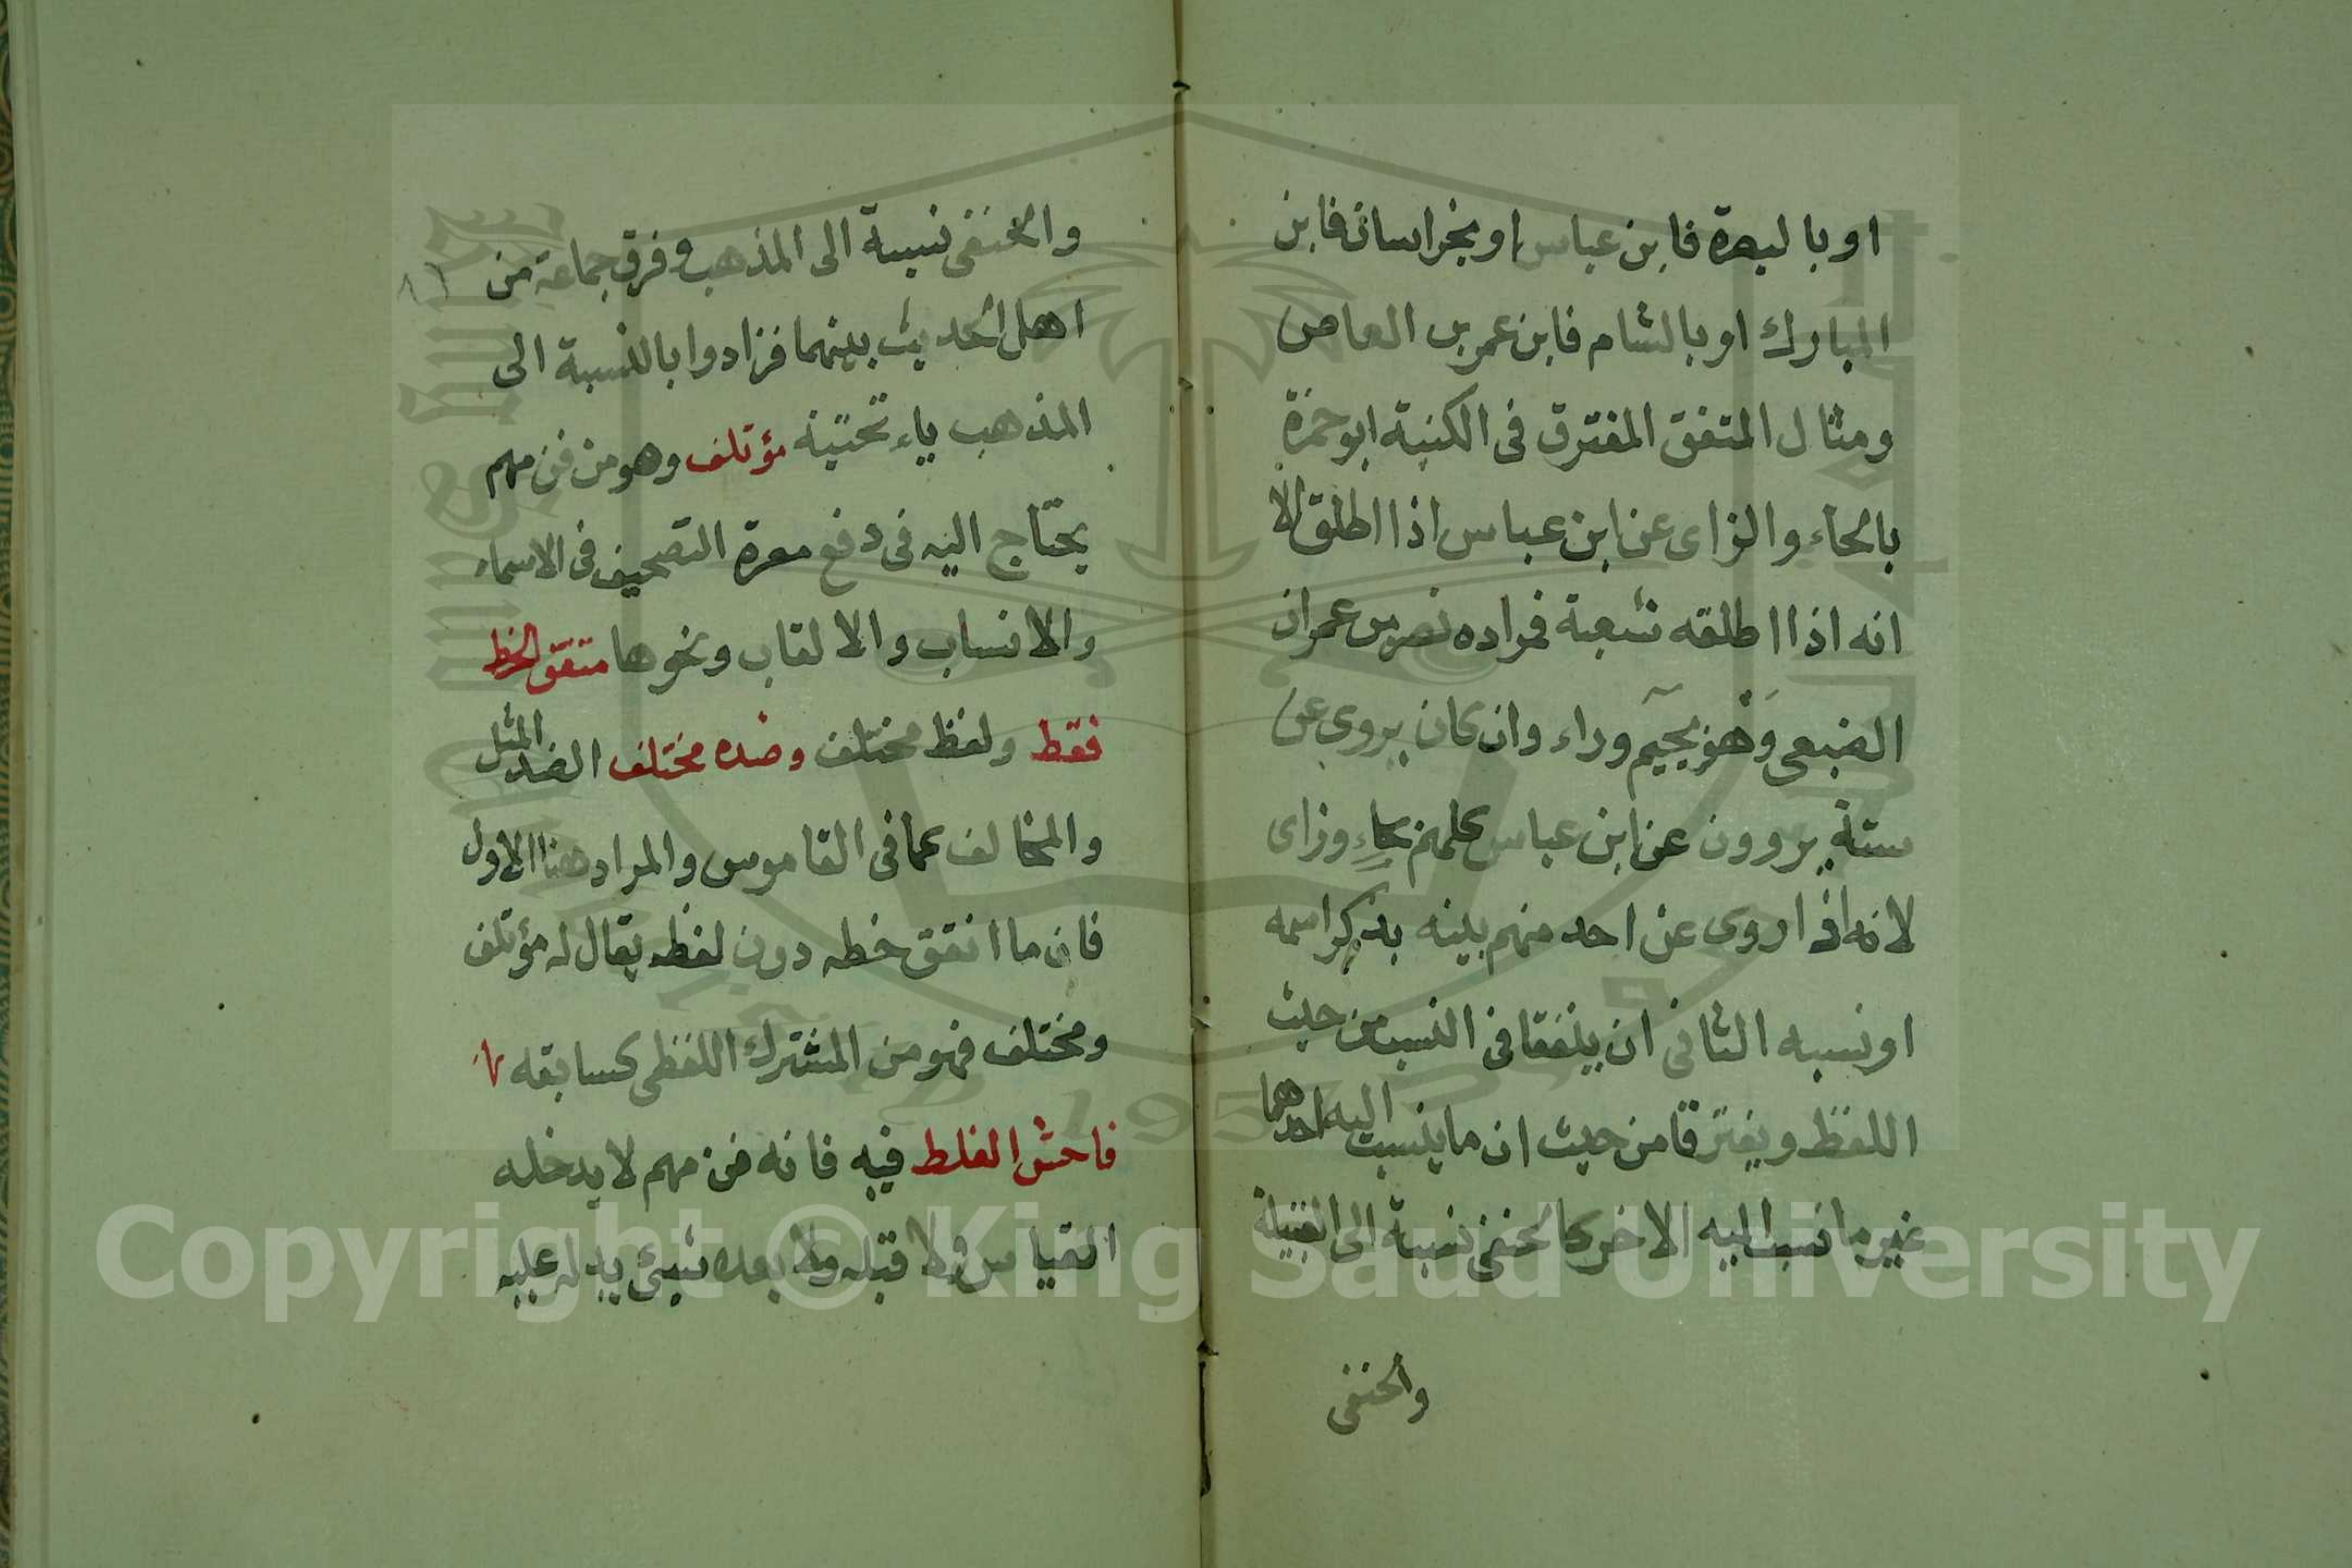 او بالبصرة فابن عباس او بخراسان فابن
المبارك او بالشام فابن عمر بن العاص
ومثال المتفق المفترق فى الكنية ابو حمزة
بالحاء والزاى عن ابن عباس اذا اطلق الا
انه اذا اطلقه شعبة فمراده نصر بن عمران
الضبعى وهو بجيم وراء وان كان يروى عن
ستة يروون عن ابن عباس كلهم بحاء وزاى
لانه اذا روى عن احد منهم بينه بذكر اسمه
او نسبه الثانى ان يتفقا فى النسب من حيث
اللفظ ويفترقا من حيث ان ما ينسبت اليه احدهما
غير ما نسب اليه الاخر كالحنفى نسبة الى القبيلة
والحنفى
والحنفى نسبة الى المذهب وفرق جماعة من
اهل الحديث بينهما فزادوا بالنسبة الى
المذهب ياء تحتية مؤتلف وهو من فن مهم
يحتاج اليه فى دفع معرة التصحيف فى الاسماء
والانساب والالقاب ونحوها متفق الخط
فقط ولفظ مختلف وضده مختلف الضد المثل
والمخالف كما فى القاموس والمراد هنا الاول
فان ما اتفق خطه دون لفظه يقال له مؤتلف
ومختلف فهو من المشترك اللفظى كسابقه
فاحش الغلط فيه فانه فن مهم لا يدخله
القياس ولا قبله ولا بعده شىء يدل عليه
Copyright © King Saud University
195